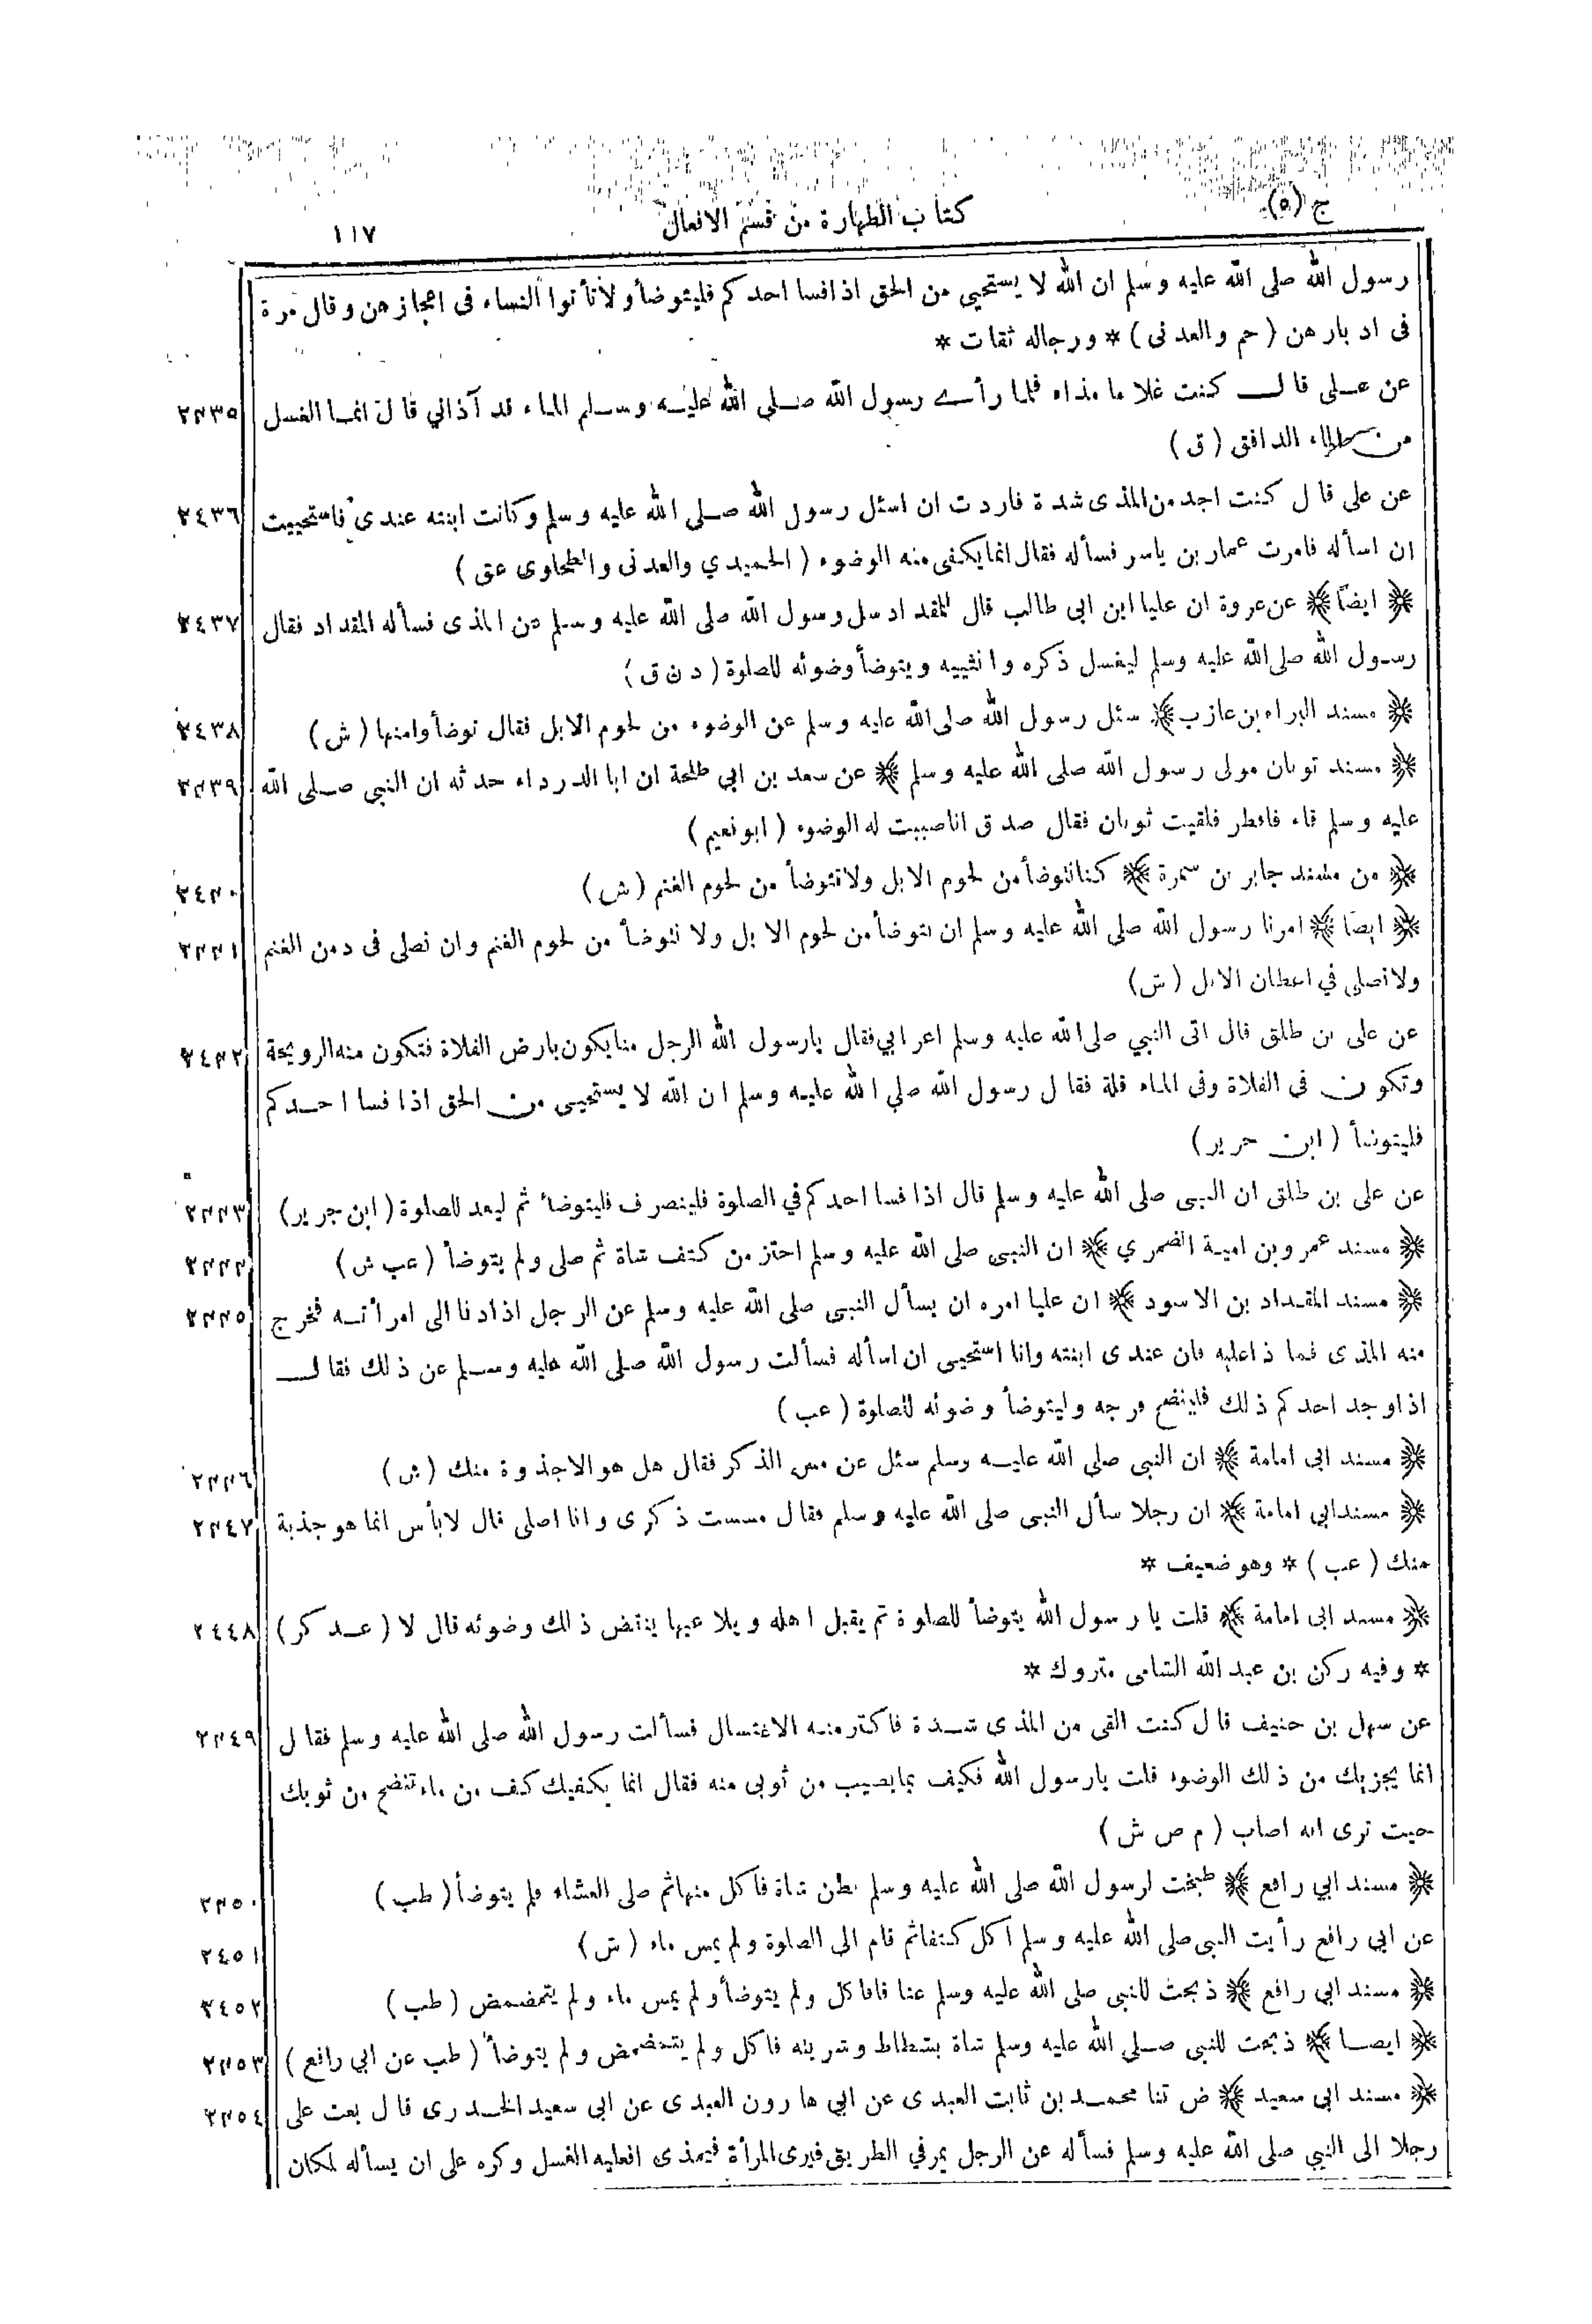 ج (٥)
كتاب الطهارة من قسم الافعال
١١٧
رسول الله صلى الله عليه وسلم ان الله لا يستحيى من الحق اذا فسا احدكم فليتوضأ ولا تأتوا النساء فى اعجازهن وقال مرة
فى ادبارهن (حم والعدنى) * ورجاله ثقات *
عن على قال كنت غلاما مذاء فلما رأى رسول الله صلى الله عليه وسلم الماء قد آذاني قال انما الغسل ٢٤٣٥
من الماء الدافق (ق)
عن على قال كنت اجد من المذى شدة فاردت ان اسئل رسول الله صلى الله عليه وسلم وكانت ابنته عندى فاستحييت ٢٤٣٦
ان اسأله فامرت عمار بن ياسر فسأله فقال انما يكفى منه الوضوء (الحميدي والعدنى والطحاوى عق)
﴿ ايضا ﴾ عن عروة ان عليا ابن ابى طالب قال للمقداد سل رسول الله صلى الله عليه وسلم عن المذى فسأله المقداد فقال ٢٤٣٧
رسول الله صلى الله عليه وسلم ليغسل ذكره وانثييه ويتوضأ وضوئه للصلوة (د ن ق)
﴿ مسند البراء بن عازب ﴾ سئل رسول الله صلى الله عليه وسلم عن الوضوء من لحوم الابل فقال توضأوا منها (ش) ٢٤٣٨
﴿ مسند ثوبان مولى رسول الله صلى الله عليه وسلم ﴾ عن سعد بن ابي طلحة ان ابا الدرداء حدثه ان النبي صلى الله ٢٤٣٩
عليه وسلم قاء فافطر فلقيت ثوبان فقال صدق انا صببت له الوضوء (ابو نعيم)
﴿ من مسند جابر بن سمرة ﴾ كنا نتوضأ من لحوم الابل ولا نتوضأ من لحوم الغنم (ش) ٢٤٤٠
﴿ ايضا ﴾ امرنا رسول الله صلى الله عليه وسلم ان نتوضأ من لحوم الابل ولا نتوضأ من لحوم الغنم وان نصلى فى دمن الغنم ٢٤٤١
ولا نصلى في اعطان الابل (ش)
عن على بن طلق قال اتى النبي صلى الله عليه وسلم اعرابي فقال يا رسول الله الرجل منا يكون بارض الفلاة فتكون منه الرويحة ٢٤٤٢
وتكون فى الفلاة وفى الماء قلة فقال رسول الله صلي الله عليه وسلم ان الله لا يستحيى من الحق اذا فسا احدكم
فليتوضأ (ابن جرير)
عن على بن طلق ان النبى صلى الله عليه وسلم قال اذا فسا احدكم في الصلوة فلينصرف فليتوضأ ثم ليعد للصلوة (ابن جرير) ٢٤٤٣
﴿ مسند عمرو بن امية الضمري ﴾ ان النبى صلى الله عليه وسلم احتز من كتف شاة ثم صلى ولم يتوضأ (عب ش) ٢٤٤٤
﴿ مسند المقداد بن الاسود ﴾ ان عليا امره ان يسأل النبى صلى الله عليه وسلم عن الرجل اذا دنا الى امرأته فخرج ٢٤٤٥
منه المذى فما ذا عليه فان عندى ابنته وانا استحيى ان اسأله فسألت رسول الله صلى الله عليه وسلم عن ذلك فقال
اذا وجد احدكم ذلك فلينضح فرجه وليتوضأ وضوئه للصلوة (عب)
﴿ مسند ابى امامة ﴾ ان النبى صلى الله عليه وسلم سئل عن مس الذكر فقال هل هو الاجذوة منك (ش) ٢٤٤٦
﴿ مسند ابى امامة ﴾ ان رجلا سأل النبى صلى الله عليه وسلم فقال مسست ذكرى وانا اصلى قال لا بأس انما هو جذبة ٢٤٤٧
منك (عب) * وهو ضعيف *
﴿ مسند ابى امامة ﴾ قلت يا رسول الله يتوضأ للصلوة ثم يقبل اهله ويلاعبها ينتقض ذالك وضوئه قال لا (عد كر) ٢٤٤٨
* وفيه ركن بن عبد الله الشامى متروك *
عن سهل بن حنيف قال كنت القى من المذى شدة فاكثر منه الاغتسال فسألت رسول الله صلى الله عليه وسلم فقال ٢٤٤٩
انما يجزيك من ذلك الوضوء قلت يا رسول الله فكيف بما يصيب من ثوبى منه فقال انما يكفيك كف من ماء تنضح من ثوبك
حيث ترى انه اصاب (م ص ش)
﴿ مسند ابي رافع ﴾ طبخت لرسول الله صلى الله عليه وسلم بطن شاة فاكل منها ثم صلى العشاء ولم يتوضأ (طب) ٢٤٥٠
عن ابي رافع رأيت النبى صلى الله عليه وسلم اكل كتفا ثم قام الى الصلوة ولم يمس ماء (ش) ٢٤٥١
﴿ مسند ابي رافع ﴾ ذبحت للنبى صلى الله عليه وسلم عناقا فاكل ولم يتوضأ ولم يمس ماء ولم يتمضمض (طب) ٢٤٥٢
﴿ ايضا ﴾ ذبحت للنبى صلى الله عليه وسلم شاة بشطاط وشربته فاكل ولم يتمضمض ولم يتوضأ (طب عن ابي رافع) ٢٤٥٣
﴿ مسند ابي سعيد ﴾ ض ثنا محمد بن ثابت العبدى عن ابي هارون العبدى عن ابى سعيد الخدرى قال بعث على ٢٤٥٤
رجلا الى النبي صلى الله عليه وسلم فسأله عن الرجل يمر في الطريق فيرى المرأة فيمذى افعليه الغسل وكره على ان يسأله لمكان